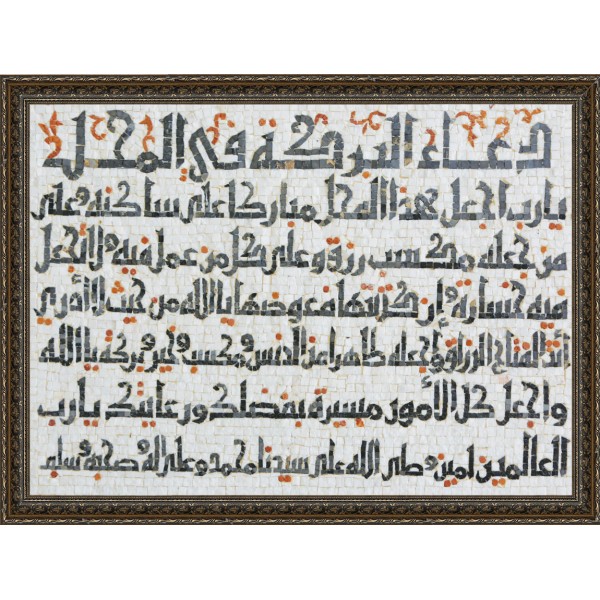 دعاء البركة في المحل
يا رب اجعل هذا المحل مباركا على ساكنه وعلى
من جعله مكسب رزق وعلى كل من عمل فيه ولا تجعل
فيه خسارة وإن كتبتها معوضها يا الله من حيث لا أدري
أنت الفتاح الرزاق واجعله طاهرا من الدنس ومكسب وخير وبركة يا الله
واجعل كل الأمور ميسرة بفضلك ورعايتك يا رب
العالمين امين وصلى الله على سيدنا محمد وعلى اله وصحبه وسلم